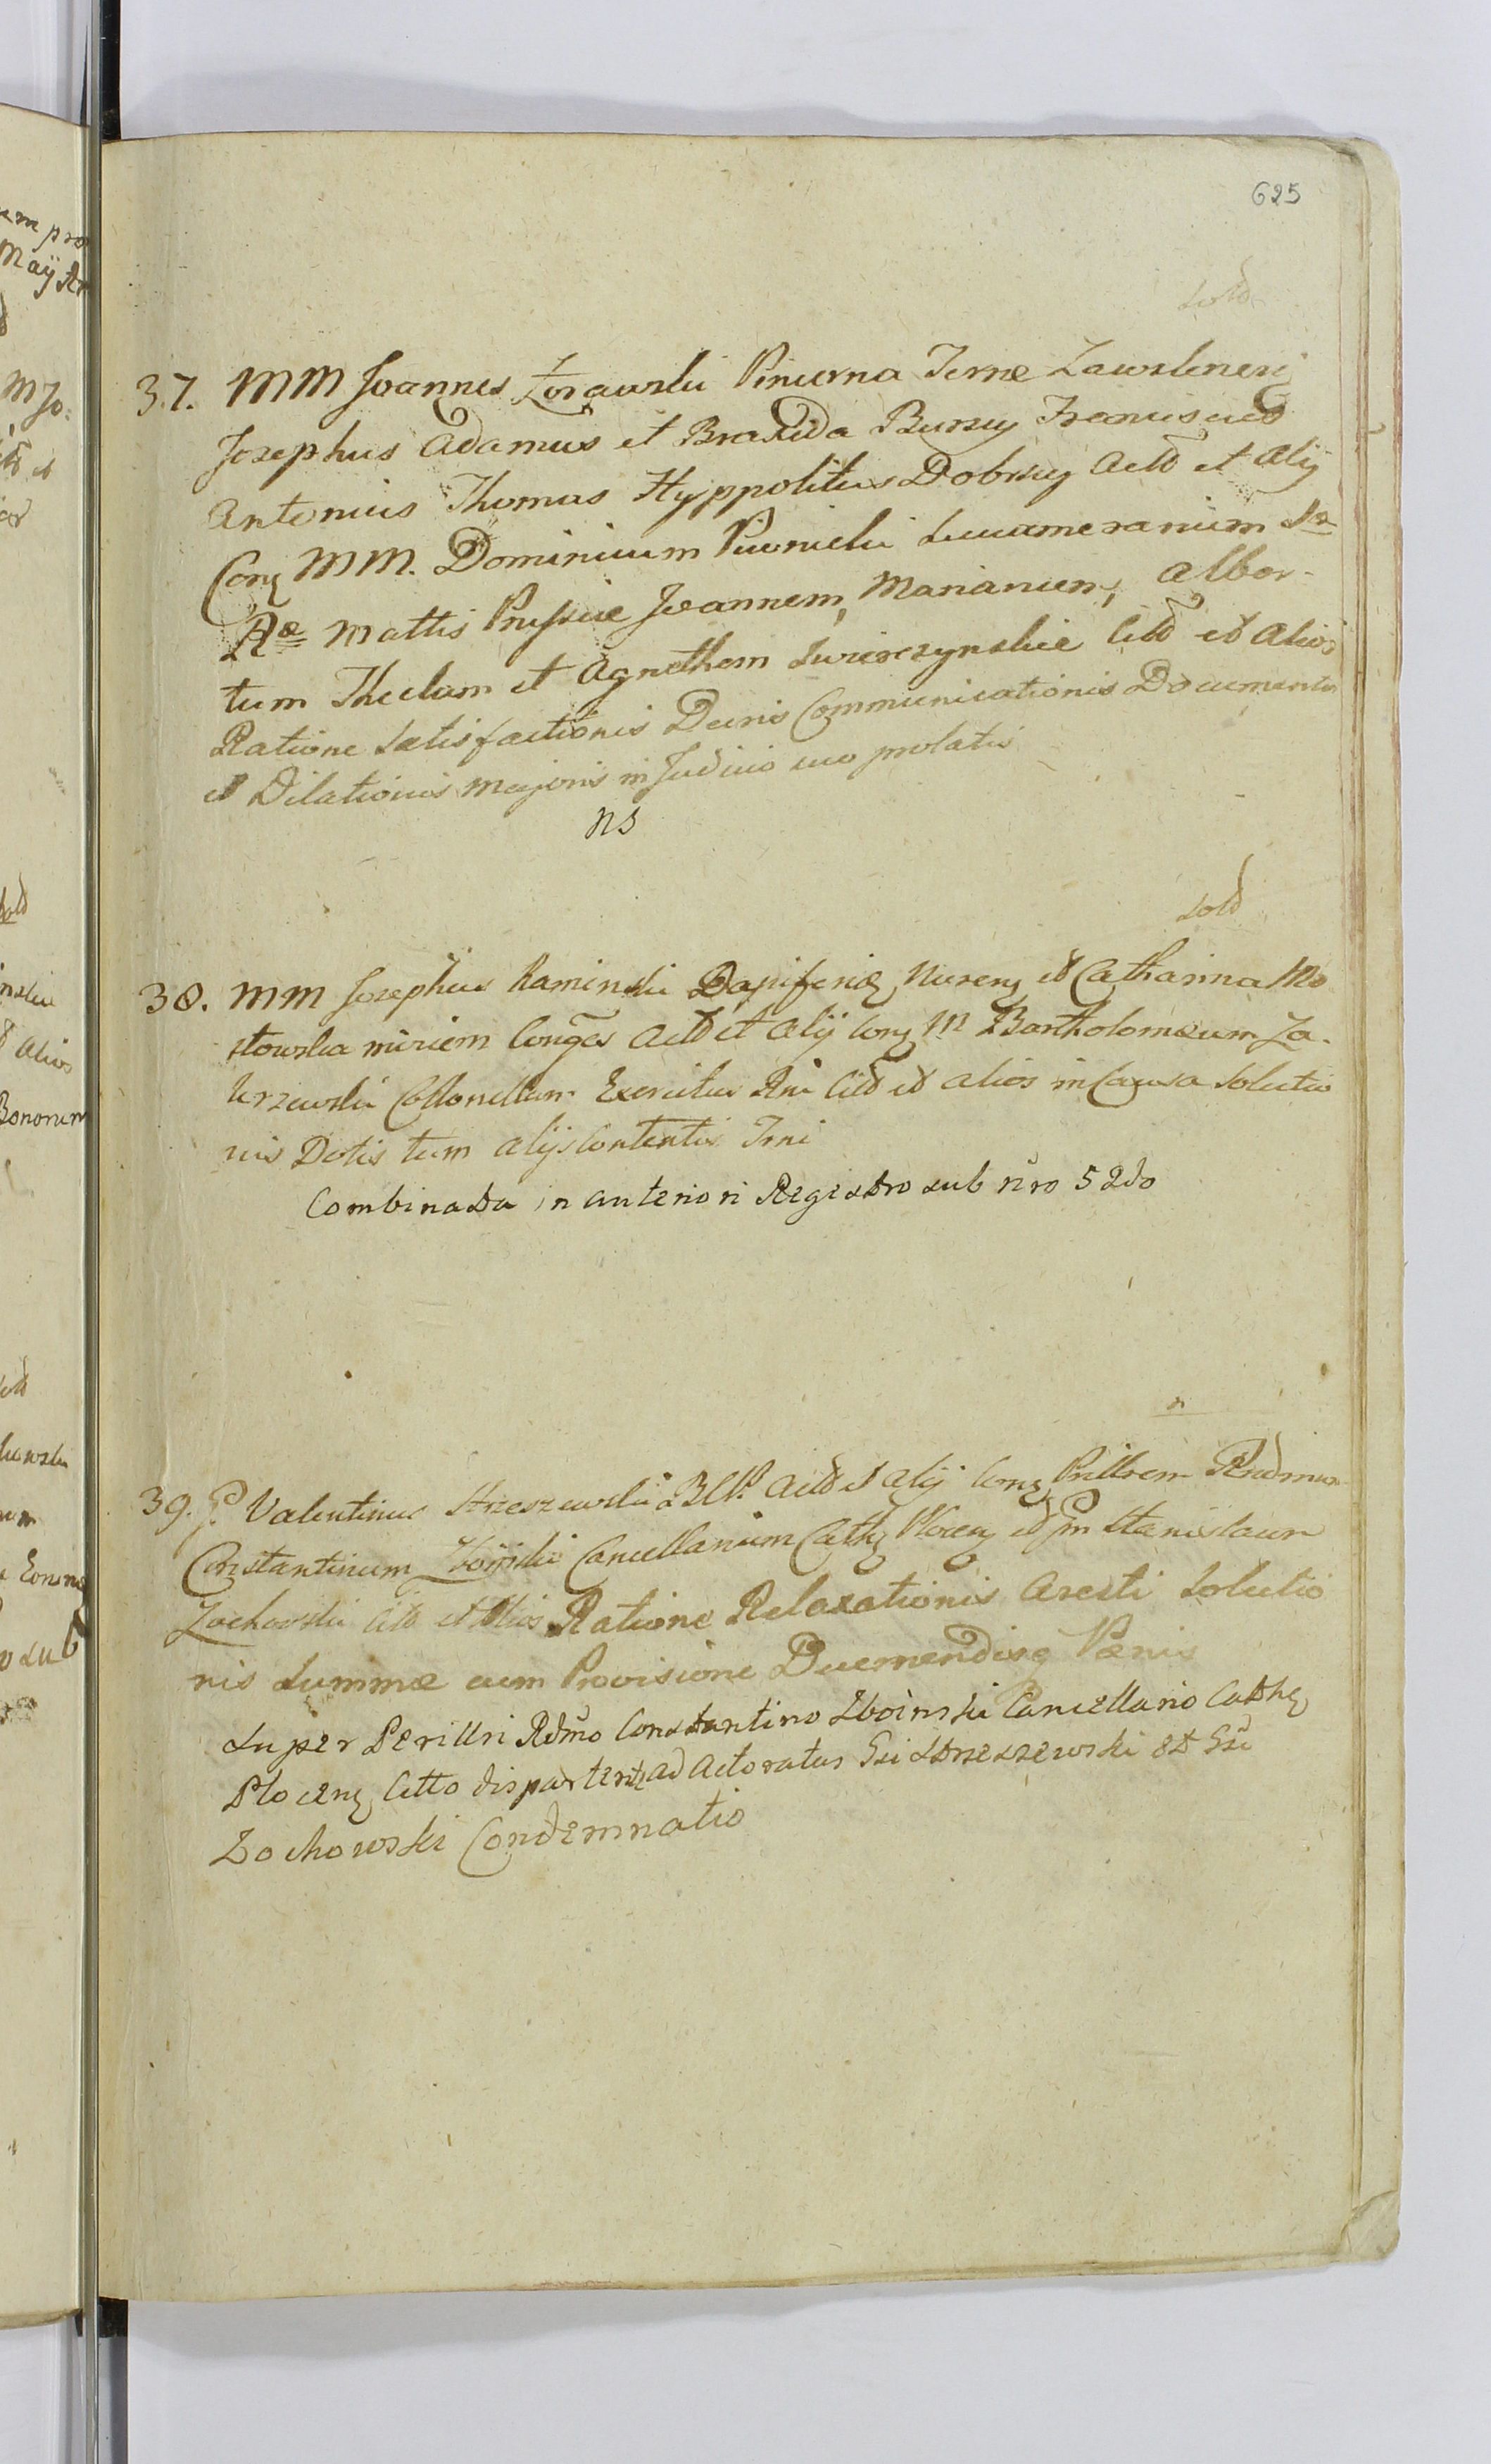 625
sold
37. MM Joannes Zorawski Pincerna Terrae Zawskrnen
Josephus Adamus et Braxeda Bursey Franciscus
Antonius Thomas Hyppolitus Dobrscy Act et Alij
Con MM. Dominicum Piwnicki Succamerarium Sr
Rae Mattis Prussiae Joannem, Marianum, Alber-
tum Theclam et Agnethem Citt et Alios
Ratione Satisfactionis Decris Communicationis Documentor
et Dilationis Majoris in Judicio suo prolatis
ns
sold
38. MM Josephus Kaminski Dapiferid Nuren et Catharina Mo
stowska miriem Conges Act et Alij Con M Bartholomaeum Za-
krzewski Collonellum Exercitus Rni Citt et alios in Causa Solutio
nis Dotis tum alijs Contentis Trni
Combinata in anteriori Registro sub nro 52do
n
39. G Valentinus Strzeszewski Act et Alij Con Prillrem Rndmum
Constantinum Zboinski Cancellarium Cath Plocen et Gm Stanislaum
Zochowski Citt et Alios Ratione Relaxationis Aresti Solutio
nis Summae cum Provisione Decernendisq Paenis
Super Perillri Rdmo Constantino Zboinski Cancellario Cath
Plocen Citto dispartern ad Actoratus Gsi Strzeszewski et Gsi
Zochowski Condemnatio